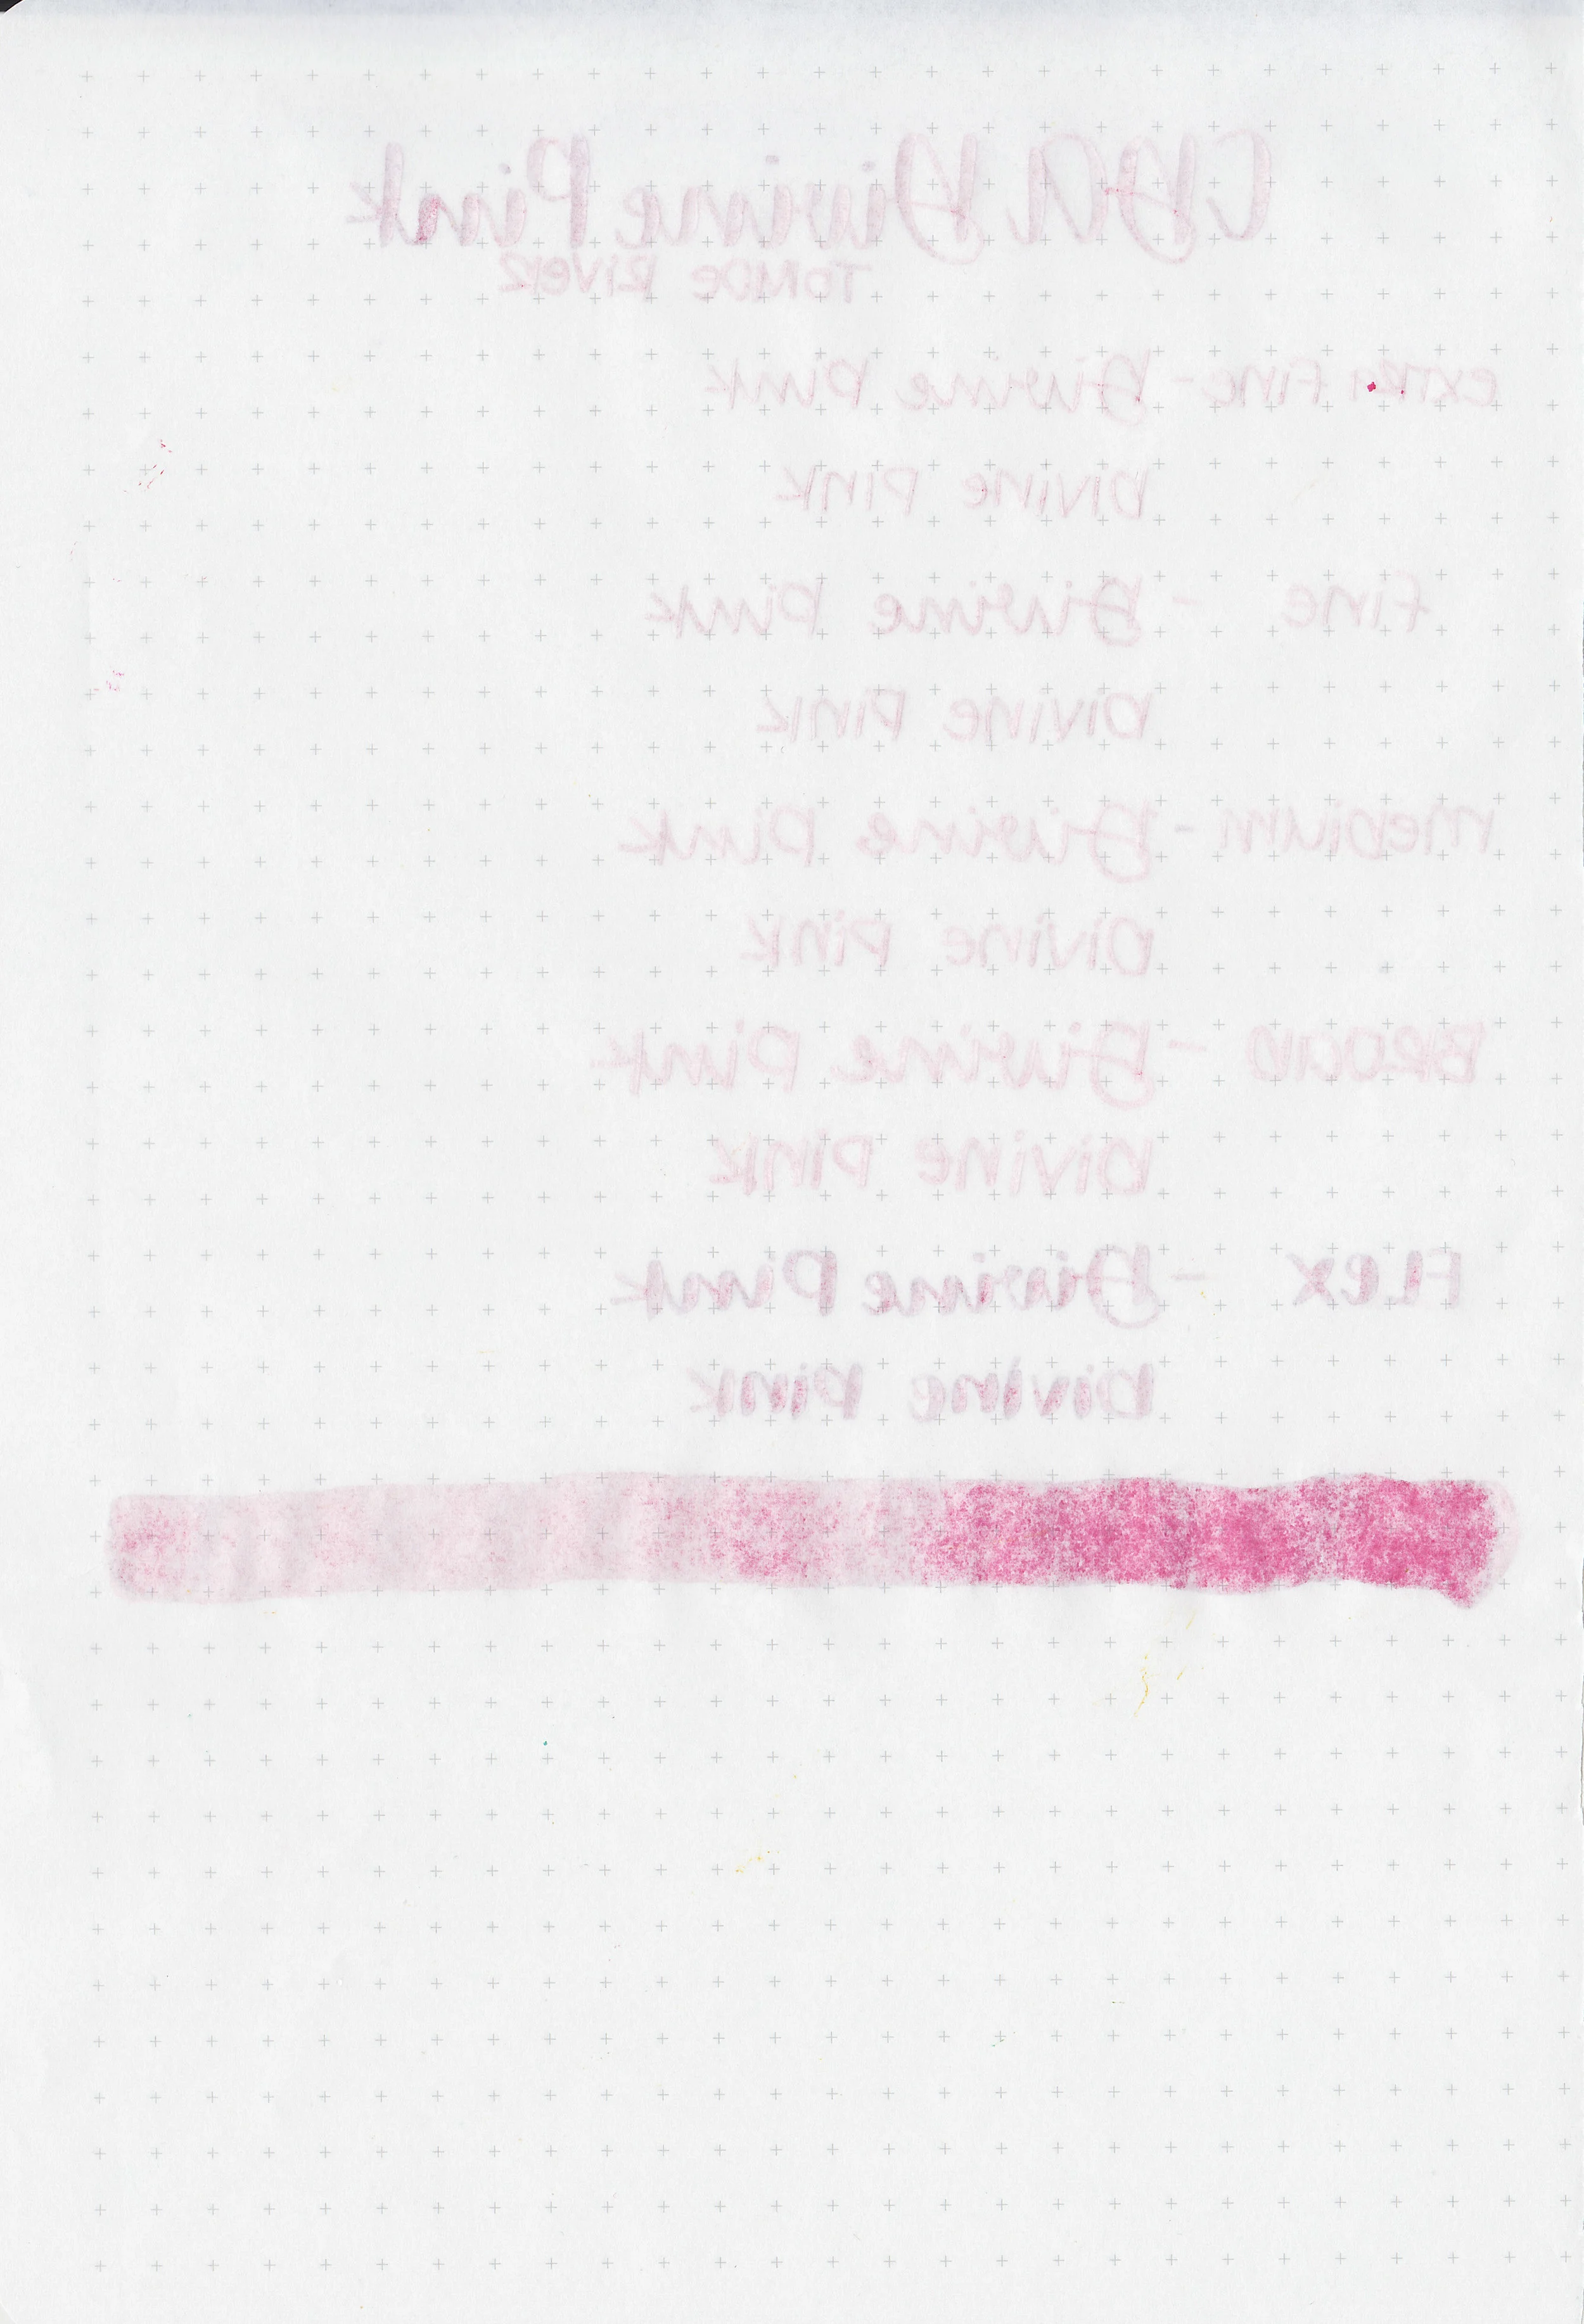 CDA Divine Pink
TOMOE RIVER
EXTRA FINE - Divine Pink
DIVINE PINK
FINE - Divine Pink
DIVINE PINK
MEDIUM - Divine Pink
DIVINE PINK
BROAD - Divine Pink
DIVINE PINK
FLEX - Divine Pink
DIVINE PINK